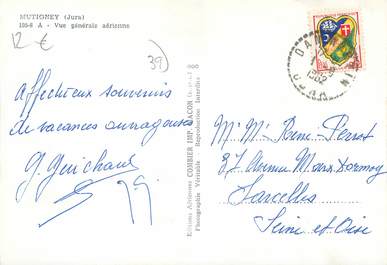 MUTIGNEY (Jura)
195-8 A - Vue générale aérienne
12 €
39
Affectueux souvenirs
de vacances
G. Guichard
Editions Aériennes COMBIER IMP. MACON
Photographie Véritable - Reproduction Interdite
1962
JURA
Mr Me Rene-Perrot
87 Avenue Marx Dormoy
Sarcelles
Seine et Oise